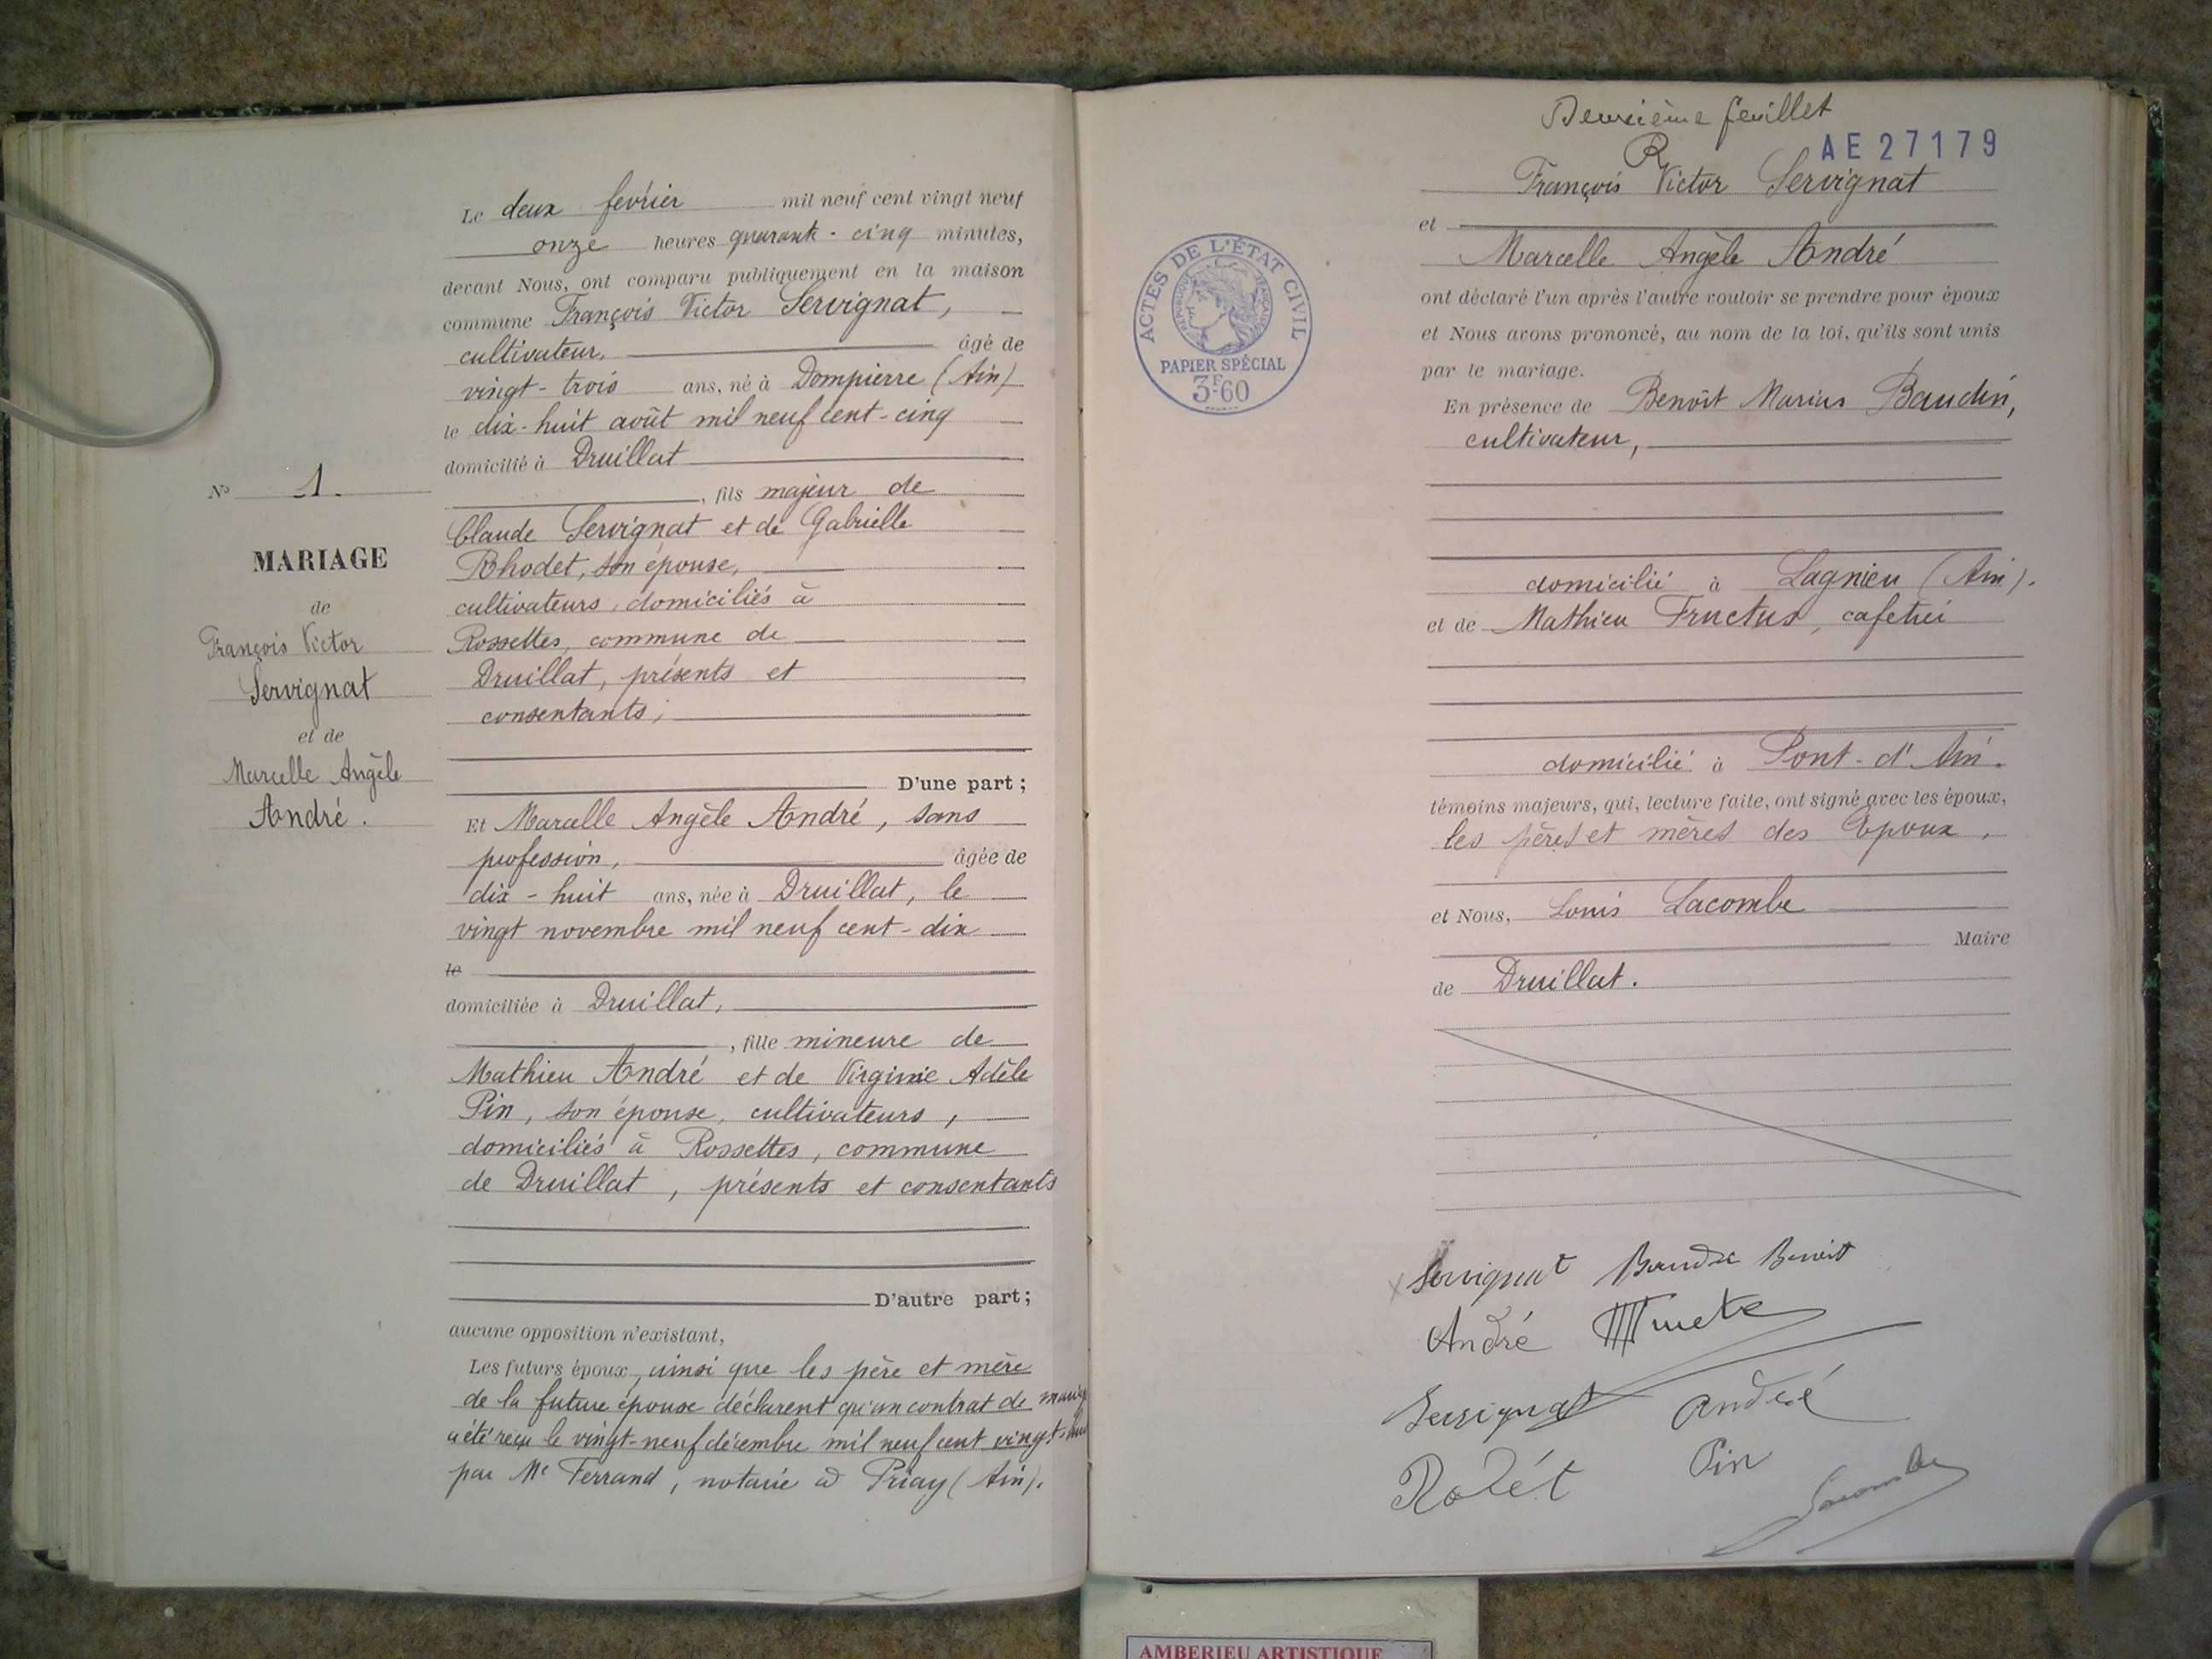 Le deux février mil neuf cent vingt neuf
onze heures quarante-cinq minutes,
devant Nous, ont comparu publiquement en la maison
commune François Victor Servignat,
cultivateur, âgé de
vingt-trois ans, né à Dompierre (Ain)
le dix-huit août mil neuf cent-cinq
domicilié à Druillat
, fils majeur de
Claude Servignat et de Gabrielle
Rhodet, son épouse,
cultivateurs, domiciliés à
Rossettes, commune de
Druillat, présents et
consentants;
D'une part;
Et Marcelle Angèle André, sans
profession, âgée de
dix-huit ans, née à Druillat, le
vingt novembre mil neuf cent-dix
le
domiciliée à Druillat,
, fille mineure de
Mathieu André et de Virginie Adèle
Pin, son épouse, cultivateurs,
domiciliés à Rossettes, commune
de Druillat, présents et consentants
D'autre part;
aucune opposition n'existant,
Les futurs époux, ainsi que les père et mère
de la future épouse déclarent qu'un contrat de
a été reçu le vingt-neuf décembre mil neuf cent
par Me Ferrand, notaire à Priay (Ain).
No 1.
MARIAGE
de
François Victor
Servignat
et de
Marcelle Angèle
André.
Deuxième feuillet
R
AE 27179
François Victor Servignat
et
Marcelle Angèle André
ont déclaré l'un après l'autre vouloir se prendre pour époux
et Nous avons prononcé, au nom de la loi, qu'ils sont unis
par le mariage.
En présence de Benoît Marius Baudin,
cultivateur,
domicilié à Lagnieu (Ain).
et de Mathieu Fructus, cafetier
domicilié à Pont-d'Ain.
témoins majeurs, qui, lecture faite, ont signé avec les époux,
les pères et mères des Epoux,
et Nous, Louis Lacombe
Maire
de Druillat.
ACTES DE L'ÉTAT CIVIL
RÉPUBLIQUE FRANÇAISE
PAPIER SPÉCIAL
3F60
Servignat Benoit
André
Servignat André
Rodét Pin
Lacombe
AMBERIEU ARTISTIQUE